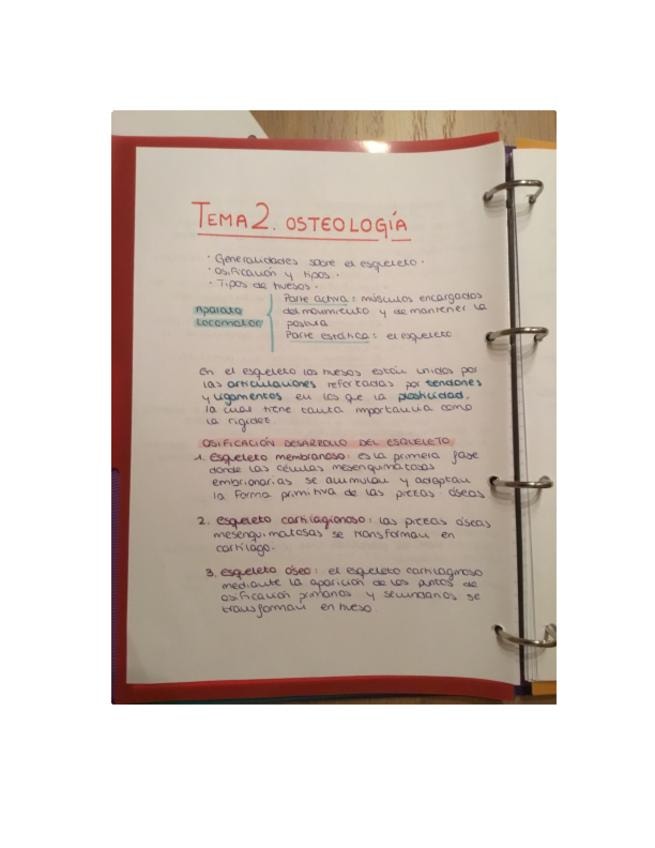 TEMA 2. OSTEOLOGÍA
· Generalidades sobre el esqueleto.
· Osificación y tipos.
· Tipos de huesos.
Aparato
Locomotor
Parte activa: músculos encargados
del movimiento y de mantener la
postura
Parte estática: el esqueleto
En el esqueleto los huesos están unidos por
las articulaciones reforzadas por tendones
y ligamentos en los que la plasticidad,
la cual tiene tanta importancia como
la rigidez.
OSIFICACIÓN DESARROLLO DEL ESQUELETO
1. Esqueleto membranoso: es la primera fase
donde las células mesenquimatosas
embrionarias se acumulan y adoptan
la forma primitiva de las piezas óseas
2. Esqueleto cartilagionoso: las piezas óseas
mesenquimatosas se transforman en
cartílago.
3. Esqueleto óseo: el esqueleto cartilaginoso
mediante la aparición de los puntos de
osificación primarios y secundarios se
transforman en hueso.